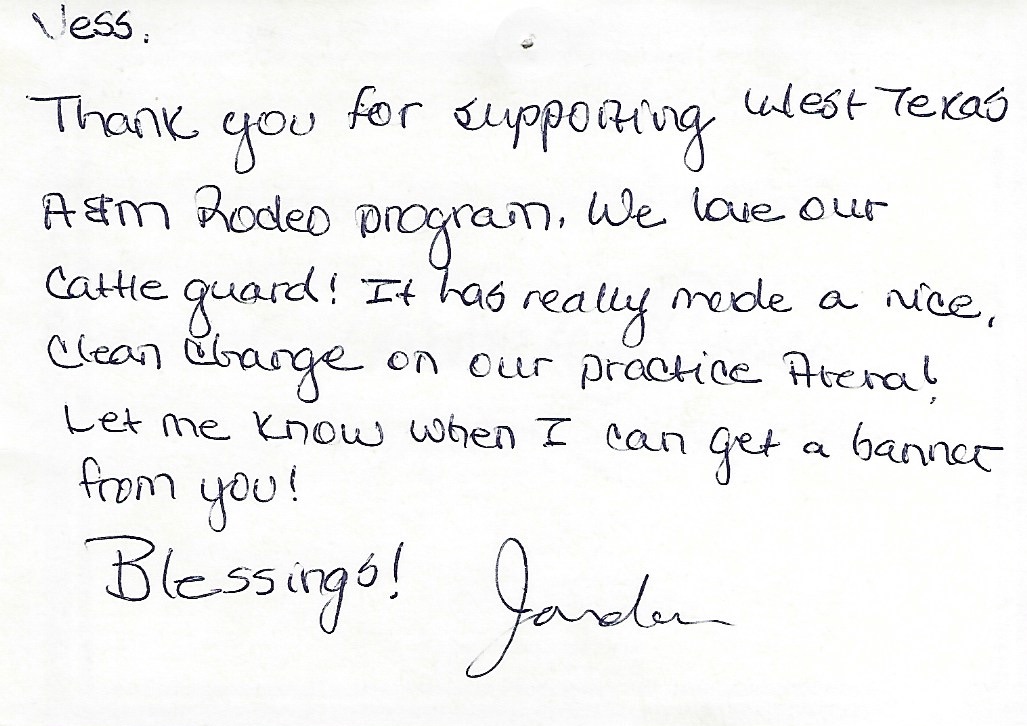 Vess.
Thank you for supporting West Texas
A&M Rodeo program. We love our
Cattle guard! It has really made a nice,
Clean Change on our practice Arena!
Let me know when I can get a banner
from you!
Blessings!